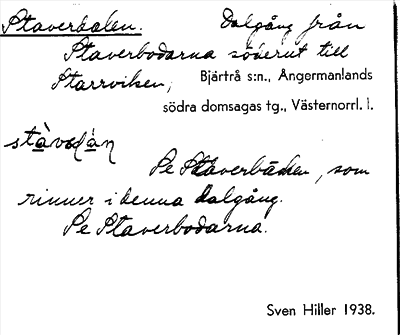 Staverdalen. Dalgång från
Staverbodarna söderut till
Starrviken; Bjärtrå s:n., Ångermanlands
södra domsagas tg., Västernorrl. l.
Se Staverbäcken, som
rinner i denna dalgång.
Se Staverbodarna.
Sven Hiller 1938.